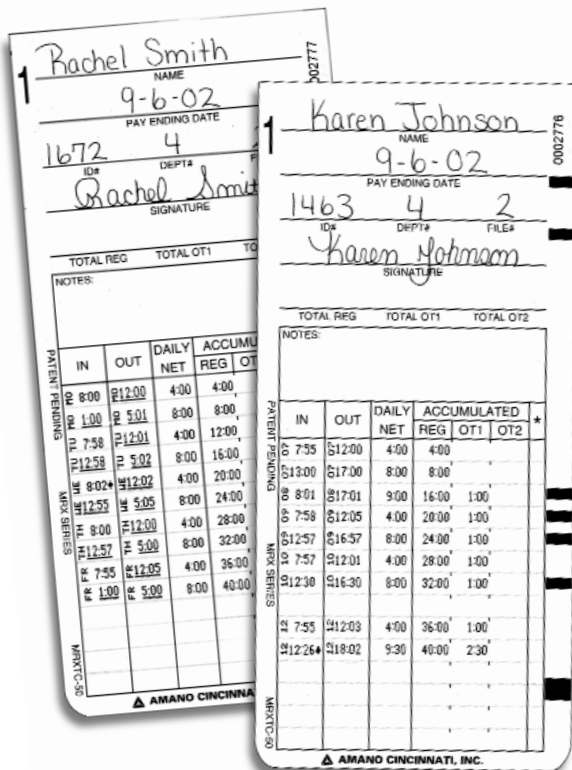 Rachel Smith
1
NAME
0002777
9-6-02
PAY ENDING DATE
1672 4
ID# DEPT#
Rachel Smit
SIGNATURE
TOTAL REG TOTAL OT1 TO
NOTES:
IN OUT DAILY NET ACCUMU
REG OT
MO 8:00 MO 12:00 4:00 4:00
MO 1:00 MO 5:01 8:00 8:00
TU 7:58 TU 12:01 4:00 12:00
TU 12:58 TU 5:02 8:00 16:00
WE 8:02♦ WE 12:02 4:00 20:00
WE 12:55 WE 5:05 8:00 24:00
TH 8:00 TH 12:00 4:00 28:00
TH 12:57 TH 5:00 8:00 32:00
FR 7:55 FR 12:05 4:00 36:00
FR 1:00 FR 5:00 8:00 40:00
PATENT PENDING
MRX SERIES
MRXTC-50
AMANO CINCINNA
Karen Johnson
1
NAME
0002776
9-6-02
PAY ENDING DATE
1463 4 2
ID# DEPT# FILE#
Karen Johnson
SIGNATURE
TOTAL REG TOTAL OT1 TOTAL OT2
NOTES:
IN OUT DAILY NET ACCUMULATED *
REG OT1 OT2
07 7:55 07 12:00 4:00 4:00
07 13:00 07 17:00 8:00 8:00
08 8:01 08 17:01 9:00 16:00 1:00
09 7:58 09 12:05 4:00 20:00 1:00
09 12:57 09 16:57 8:00 24:00 1:00
10 7:57 10 12:01 4:00 28:00 1:00
10 12:30 10 16:30 8:00 32:00 1:00
12 7:55 12 12:03 4:00 36:00 1:00
12 12:26♦ 12 18:02 9:30 40:00 2:30
PATENT PENDING
MRX SERIES
MRXTC-50
AMANO CINCINNATI, INC.